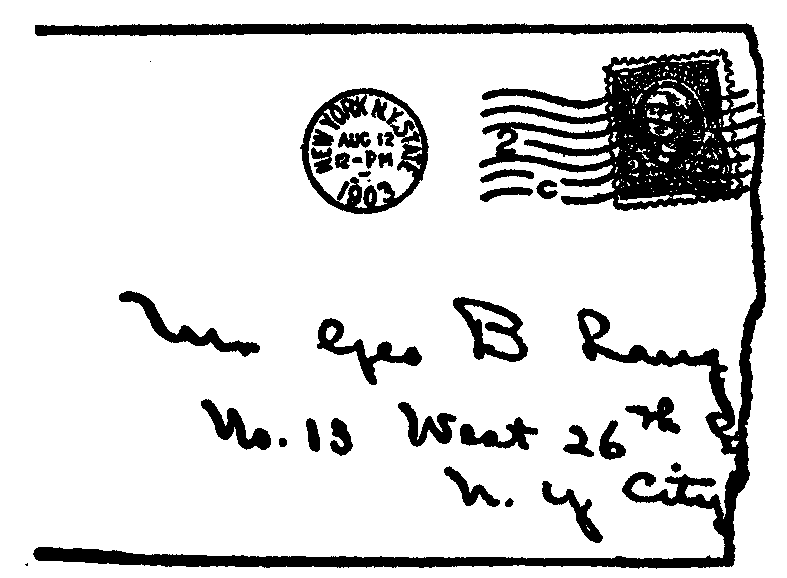 NEW YORK N.Y. STATE
AUG 12
12-PM
1903
2
C
Geo B
No. 13 West 26th
N. Y. City